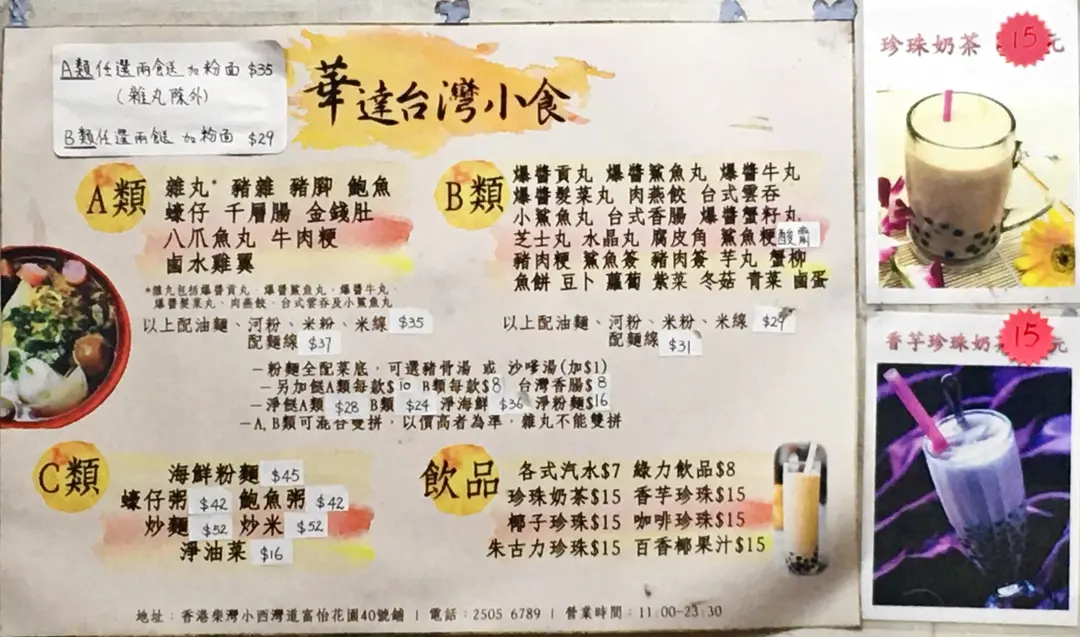 A類任選兩餸送加粉面 $35
(雜丸除外)
B類任選兩餸 加粉面 $29
華達台灣小食
A類
雜丸* 豬雜 豬腳 鮑魚
蠔仔 千層腸 金錢肚
八爪魚丸 牛肉粳
鹵水雞翼
*雜丸包括爆醬貢丸、爆醬鯊魚丸、爆醬牛丸、
爆醬髮菜丸、肉燕餃、台式雲吞及小鯊魚丸
以上配油麵、河粉、米粉、米線 $35
配麵線 $37
B類
爆醬貢丸 爆醬鯊魚丸 爆醬牛丸
爆醬髮菜丸 肉燕餃 台式雲吞
小鯊魚丸 台式香腸 爆醬蟹籽丸
芝士丸 水晶丸 腐皮角 鯊魚粳 酸齋
豬肉粳 鯊魚簽 豬肉簽 芋丸 蟹柳
魚餅 豆卜 蘿蔔 紫菜 冬菇 青菜 鹵蛋
以上配油麵、河粉、米粉、米線 $29
配麵線 $31
—粉麵全配菜底，可選豬骨湯 或 沙嗲湯(加$1)
—另加餸A類每款$10 B類每款$8 台灣香腸$8
—淨餸A類 $28 B類 $24 淨海鮮 $36 淨粉麵$16
—A, B類可混合雙拼，以價高者為準，雜丸不能雙拼
C類
海鮮粉麵 $45
蠔仔粥 $42 鮑魚粥 $42
炒麵 $52 炒米 $52
淨油菜 $16
飲品
各式汽水$7 綠力飲品$8
珍珠奶茶$15 香芋珍珠$15
椰子珍珠$15 咖啡珍珠$15
朱古力珍珠$15 百香椰果汁$15
地址：香港柴灣小西灣道富怡花園40號鋪 | 電話：2505 6789 | 營業時間：11:00-23:30
珍珠奶茶 15元
香芋珍珠奶 15元